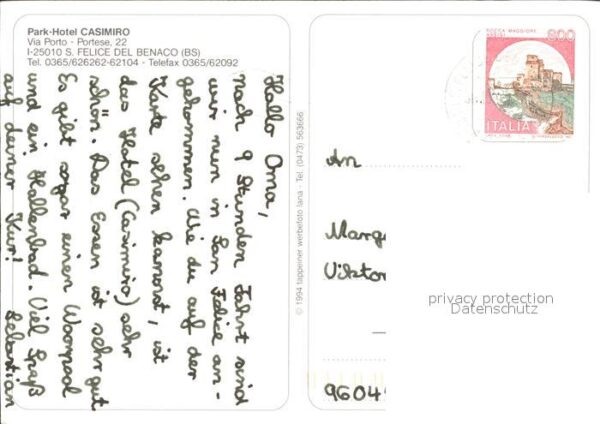 Park-Hotel CASIMIRO
Via Porto - Portese, 22
I-25010 S. FELICE DEL BENACO (BS)
Tel. 0365/626262-62104 - Telefax 0365/62092
Hallo Oma,
nach 9 Stunden Fahrt sind
wir nun in San Felice an-
gekommen. Wie du auf der
Karte sehen kannst, ist
das Hotel (Casimiro) sehr
schön. Das Essen ist sehr gut
Es gibt sogar einen Woorpool
und ein Hallenbad. Viel Spaß
auf deiner Kur! Sebastian
© 1994 tappeiner werbefoto lana - Tel. (0473) 563666
800
ITALIA
An
Marg
Viktor
9604
privacy protection
Datenschutz